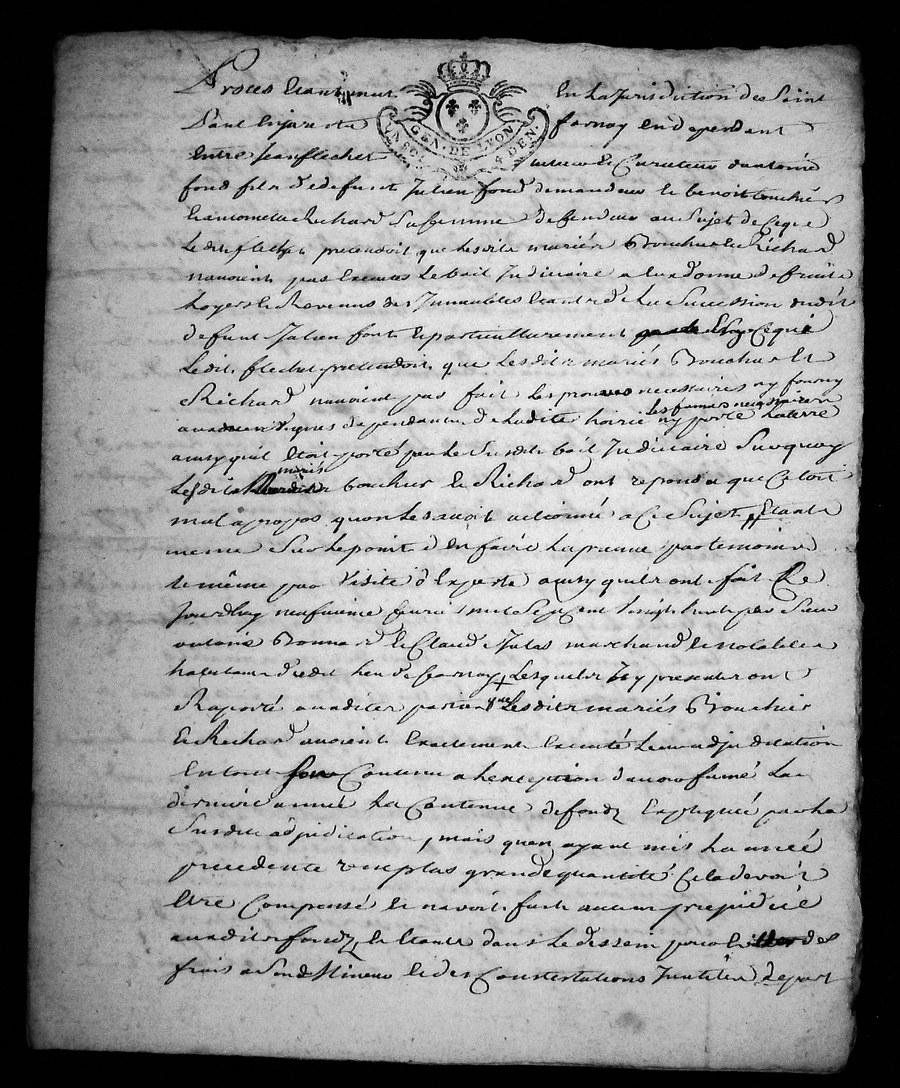 Proces Etant mut En La Jurisdiction de Saint
Paul En Jarest farnay en dependant
GEN. DE LYON
4 DEN.
Entre Jean flechet tuteur Et Curateur dantoine
fond fils de defunt Julien fond demandeur Et benoit bouchu
Et antoinette Richard Sa femme deffendeurs au Sujet de Ce que
Le dit flechet pretendoit que Lesdits mariés Bouchu Et Richard
navoient pas Executés Le bail Judiciaire a eux donné des fruits
Loyers Et Revenus des Immeubles Etants de La Succession dudit
defunt Julien font Et particulierement Ce que
Le dit flechet pretendoit que Lesdits mariés Bouchu Et
Richard navoient pas fait Les provins necessaires ny fourny
Les fumiers necessaires
aux vignes dependantes de La dite hoirie ny porté La terre
ainsy quil Etoit porté par Le Susdit bail Judiciaire Surquoy
mariés
Lesdits Bouchu Et Richard ont repondu que Cetoit
mal apropos quon Les avoit actionné a Ce Sujet Etants
meme Sur Le point den faire La preuve par temoins
Et même par Visite dExperts ainsy quils ont fait Ce
Jourdhuy neufvieme fevrier mil Sept Cent vingt huit par Sieur
antoine Bonnard Et Claude Julas marchands Et notables
habitants dudit Lieu de farnay Lesquels Icy presents ont
Raporté aux dites parties que Lesdits mariés Bouchu
Et Richard avoient Exactement Executé Leur adjudication
En tout Son Contenu a Lexception davoir fumé La
derniere année La Contenue de fondz Expliquée par La
Susdite adjudication, mais quen ayant mis Lannée
precedente une plus grande quantité Cela devoit
Etre Compensé Et navoit fait aucun prejudice
auxdits fondz, Et Etants dans Le dessein peviter des
frais a Son Mineur Et des Contestations Inutiles de part